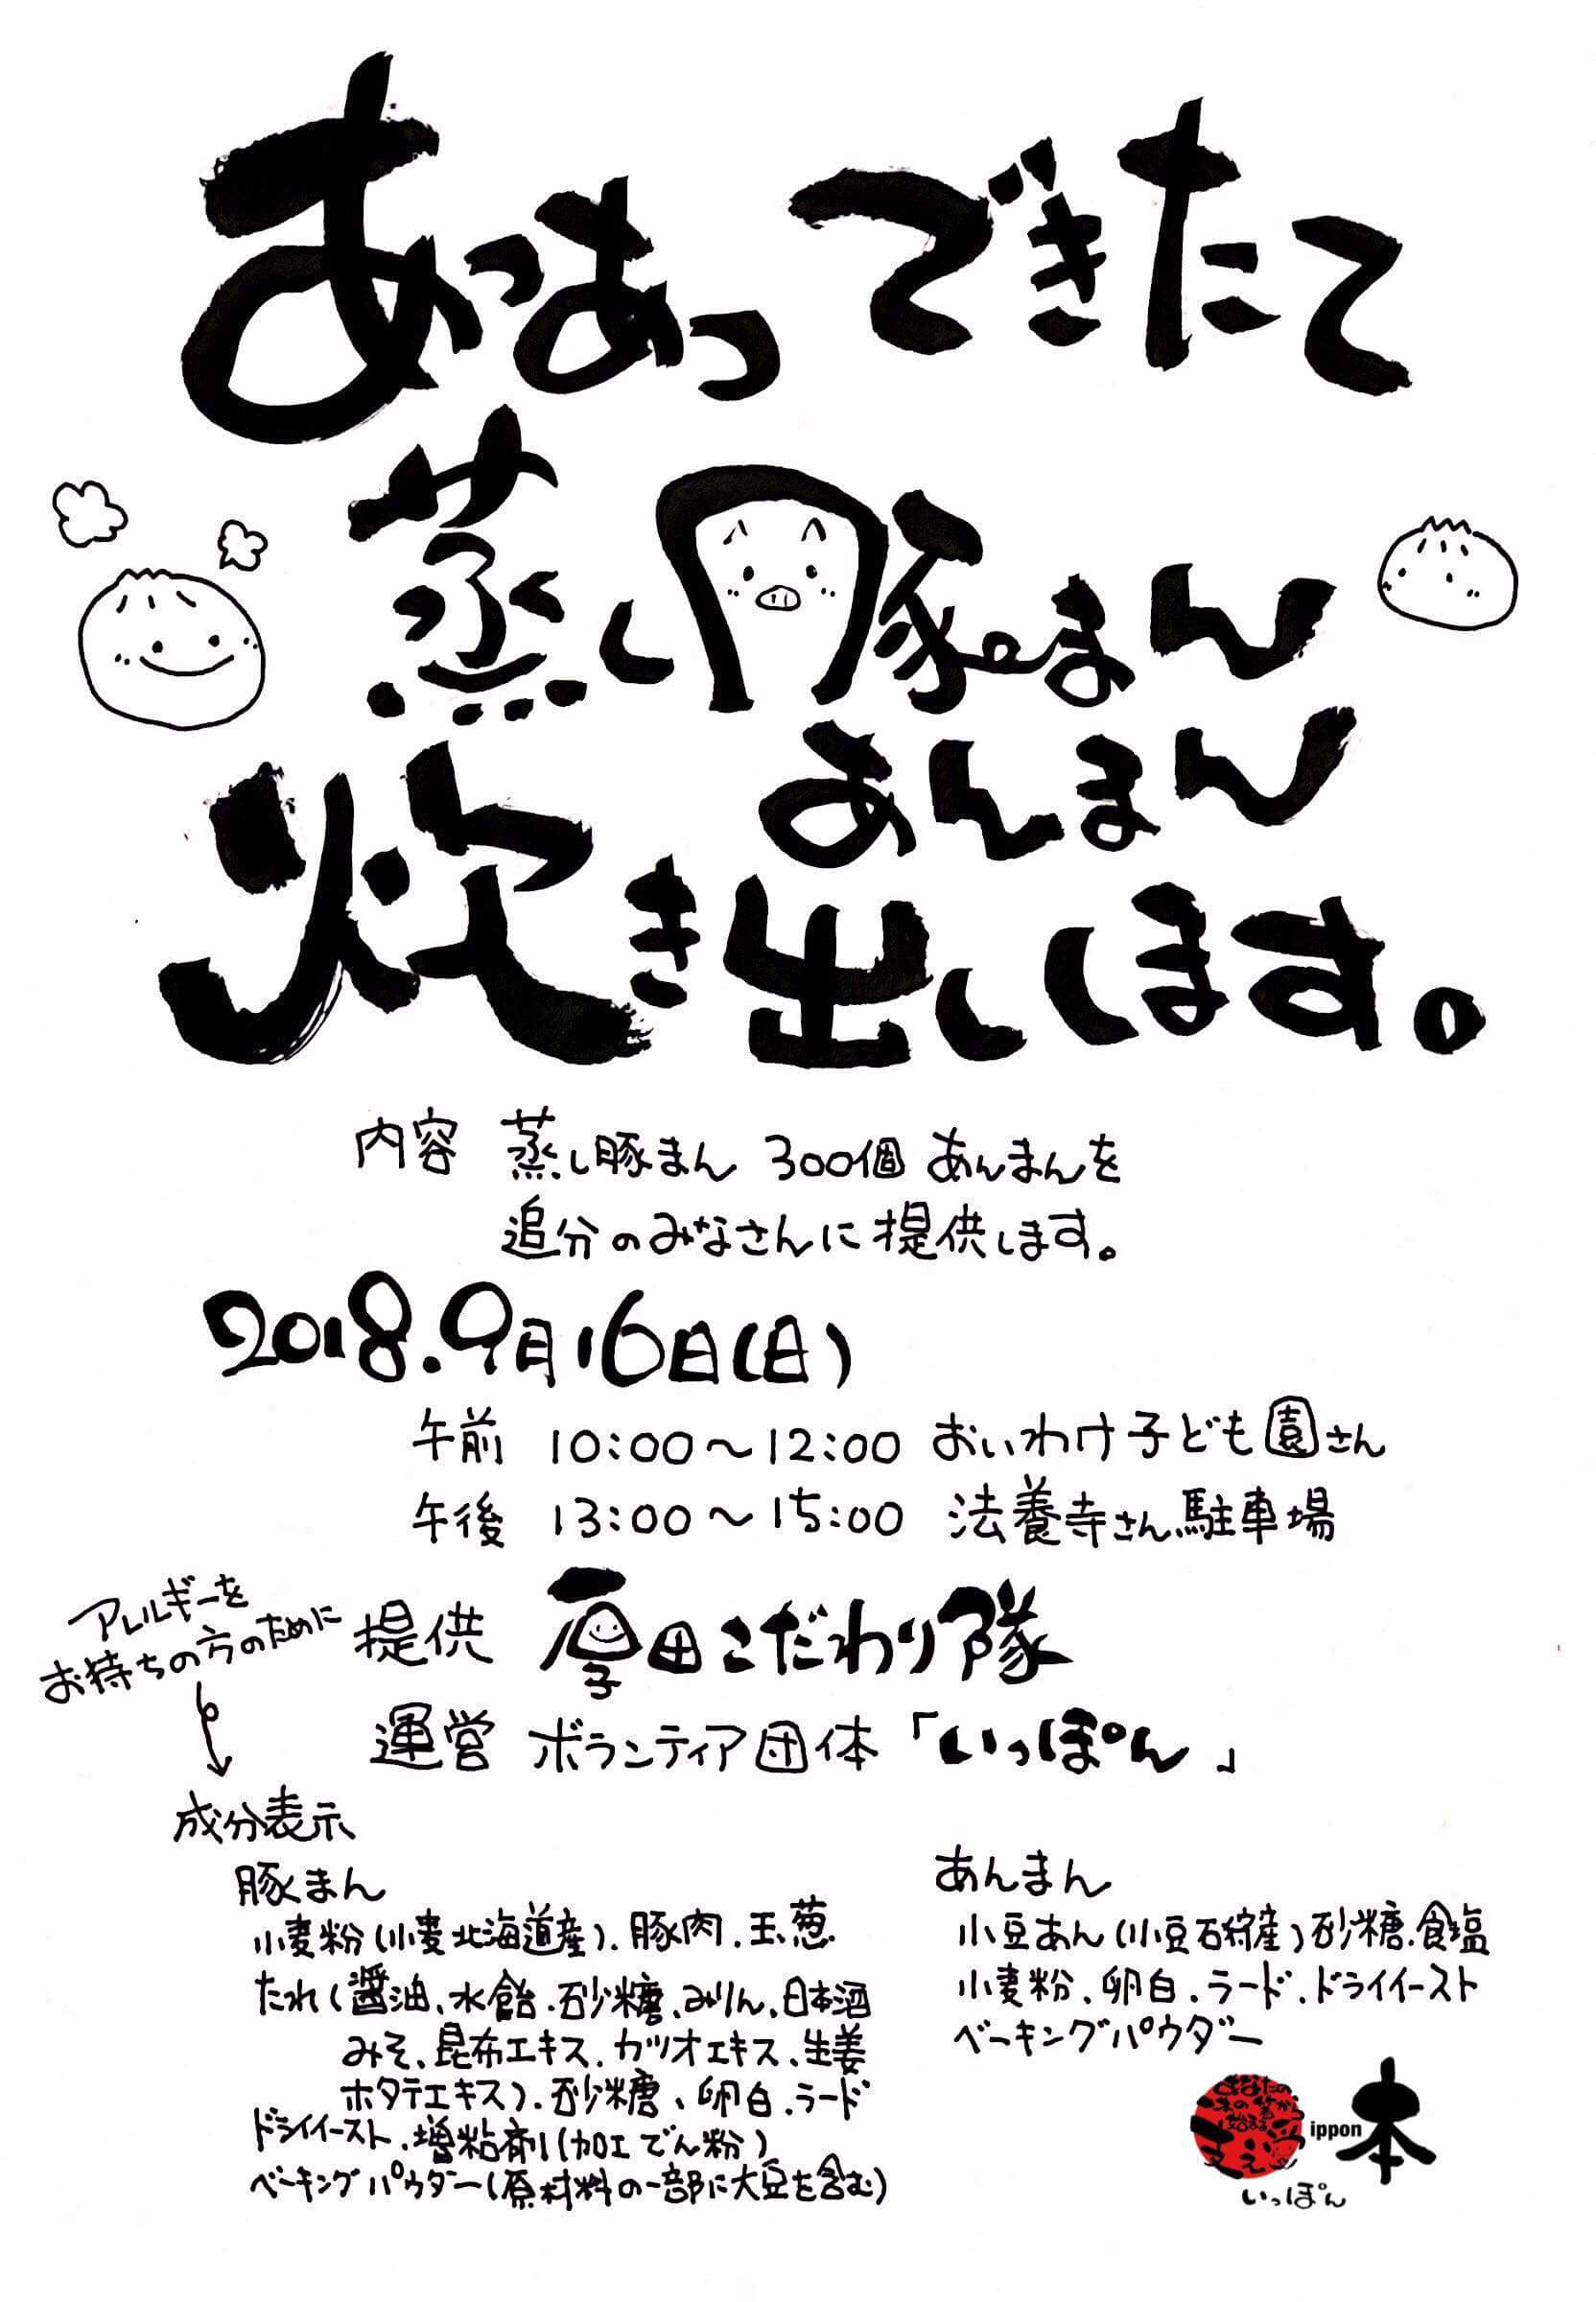 あつあつできたて
蒸し豚まん
あんまん
炊き出しします。
内容 蒸し豚まん 300個 あんまんを
追分のみなさんに提供します。
2018.9月16日(日)
午前 10:00〜12:00 おいわけ子ども園さん
午後 13:00〜15:00 法養寺さん駐車場
アレルギーを
お持ちの方のために
提供 厚田こだわり隊
運営 ボランティア団体「いっぽん」
成分表示
豚まん
小麦粉(小麦北海道産)、豚肉、玉葱
たれ(醤油、水飴、砂糖、みりん、日本酒
みそ、昆布エキス、カツオエキス、生姜
ホタテエキス)、砂糖、卵白、ラード
ドライイースト、増粘剤(加工でん粉)
ベーキングパウダー(原材料の一部に大豆を含む)
あんまん
小豆あん(小豆石狩産)砂糖、食塩
小麦粉、卵白、ラード、ドライイースト
ベーキングパウダー
ippon
本
いっぽん